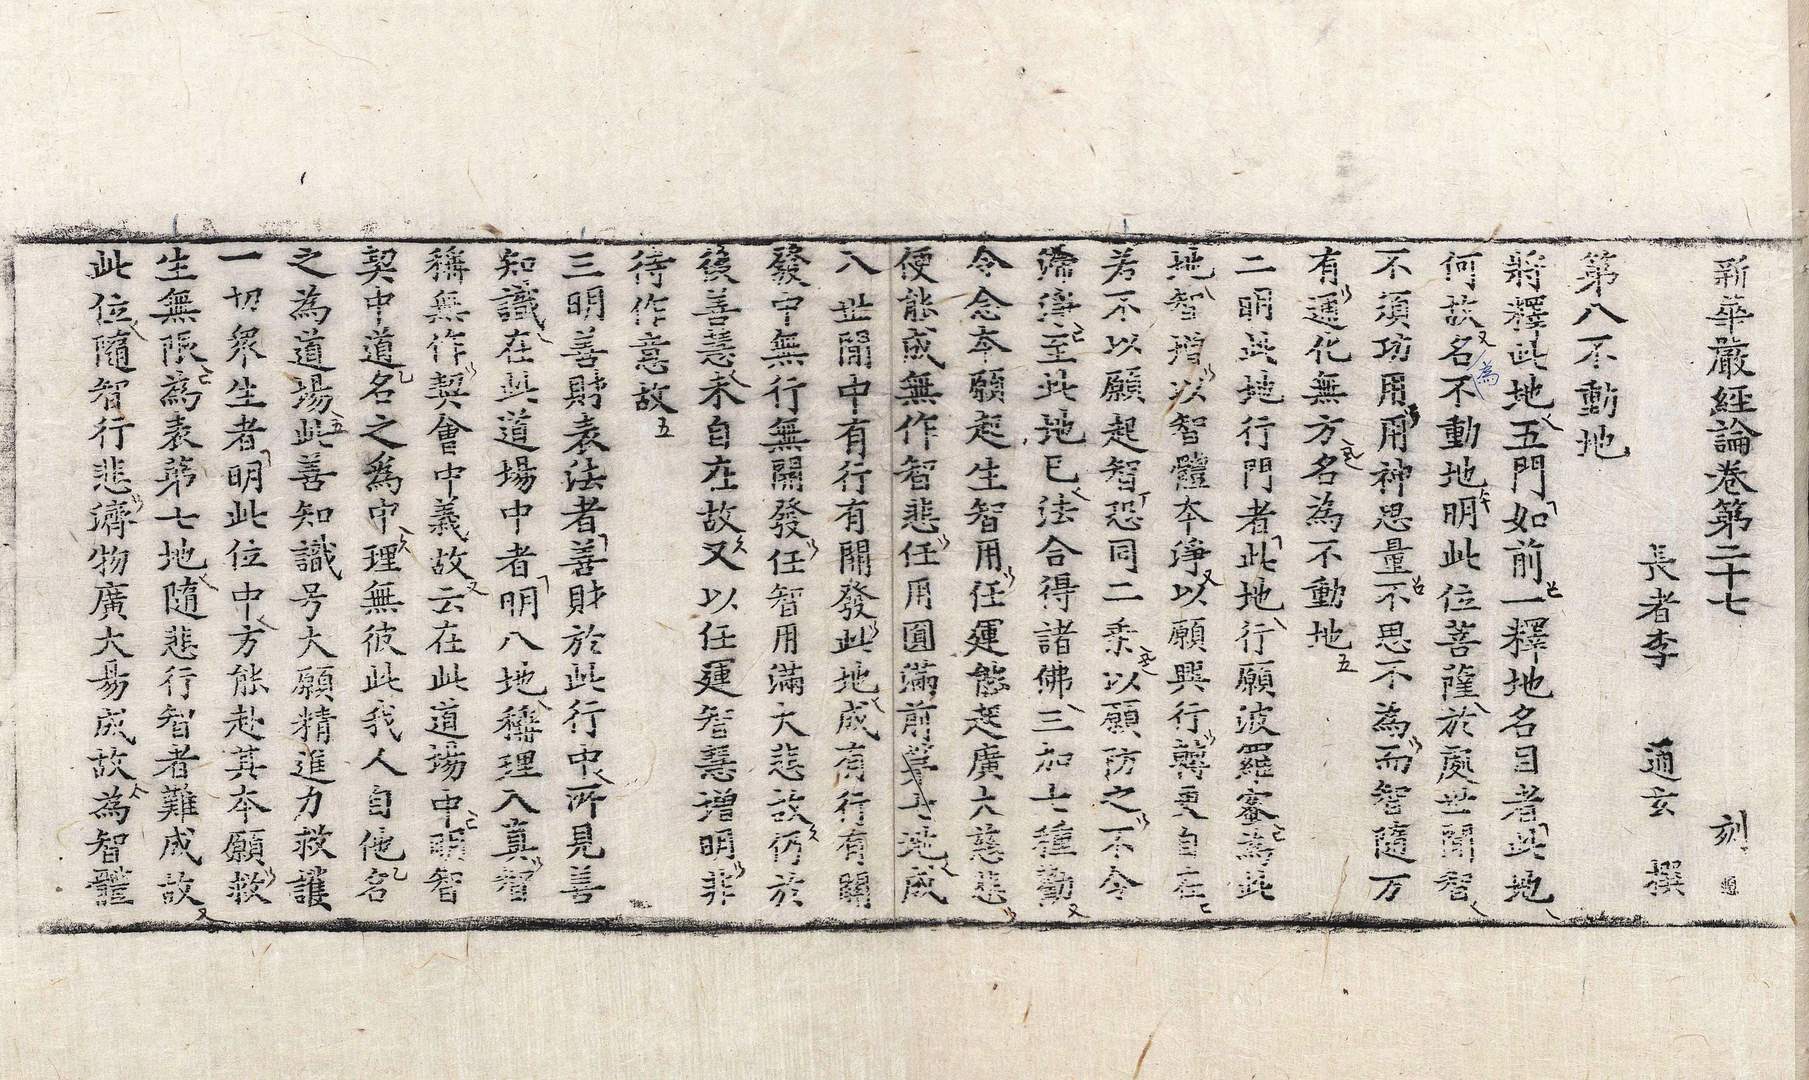 新華嚴經論卷第二十七 刻
長者李 通玄 撰
第八不動地
將釋此地五門如前一釋地名目者此地
何故名不動地明此位菩薩於處世間智
為
不須功用用神思量不思不為而智隨万
有通化無方名為不動地
二明此地行門者此地行願波羅蜜為此
地智增以智體本淨以願興行轉更自在
若不以願起智恐同二乘以願防之不令
滯寂至此地已法合得諸佛三加七種勸
令念本願起生智用任運能起廣大慈悲
便能成無作智悲任用圓滿前第七地成
八世間中有行有開發此地成有行有開
發中無行無開發任智用滿大悲故仍於
後善慧未自在故又以任運智慧增明非
待作意故
三明善財表法者善財於此行中所見善
知識在此道場中者明八地稱理入真智
稱無作契會中義故云在此道場中明智
契中道名之為中理無彼此我人自他名
之為道場此善知識号大願精進力救護
一切衆生者明此位中方能赴其本願救
生無限為表第七地隨悲行智者難成故
此位隨智行悲濟物廣大易成故為智體